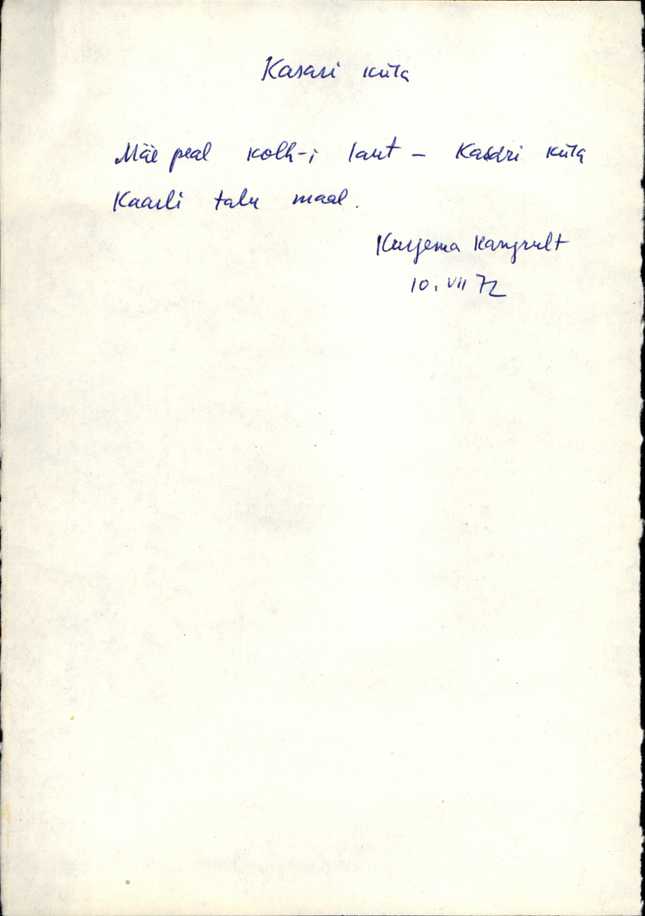 Kasari küla
Mäe peal kolh-i laut – Kasari küla
Kaarli talu maal.
Kurgema Kangrult
10. VII 72